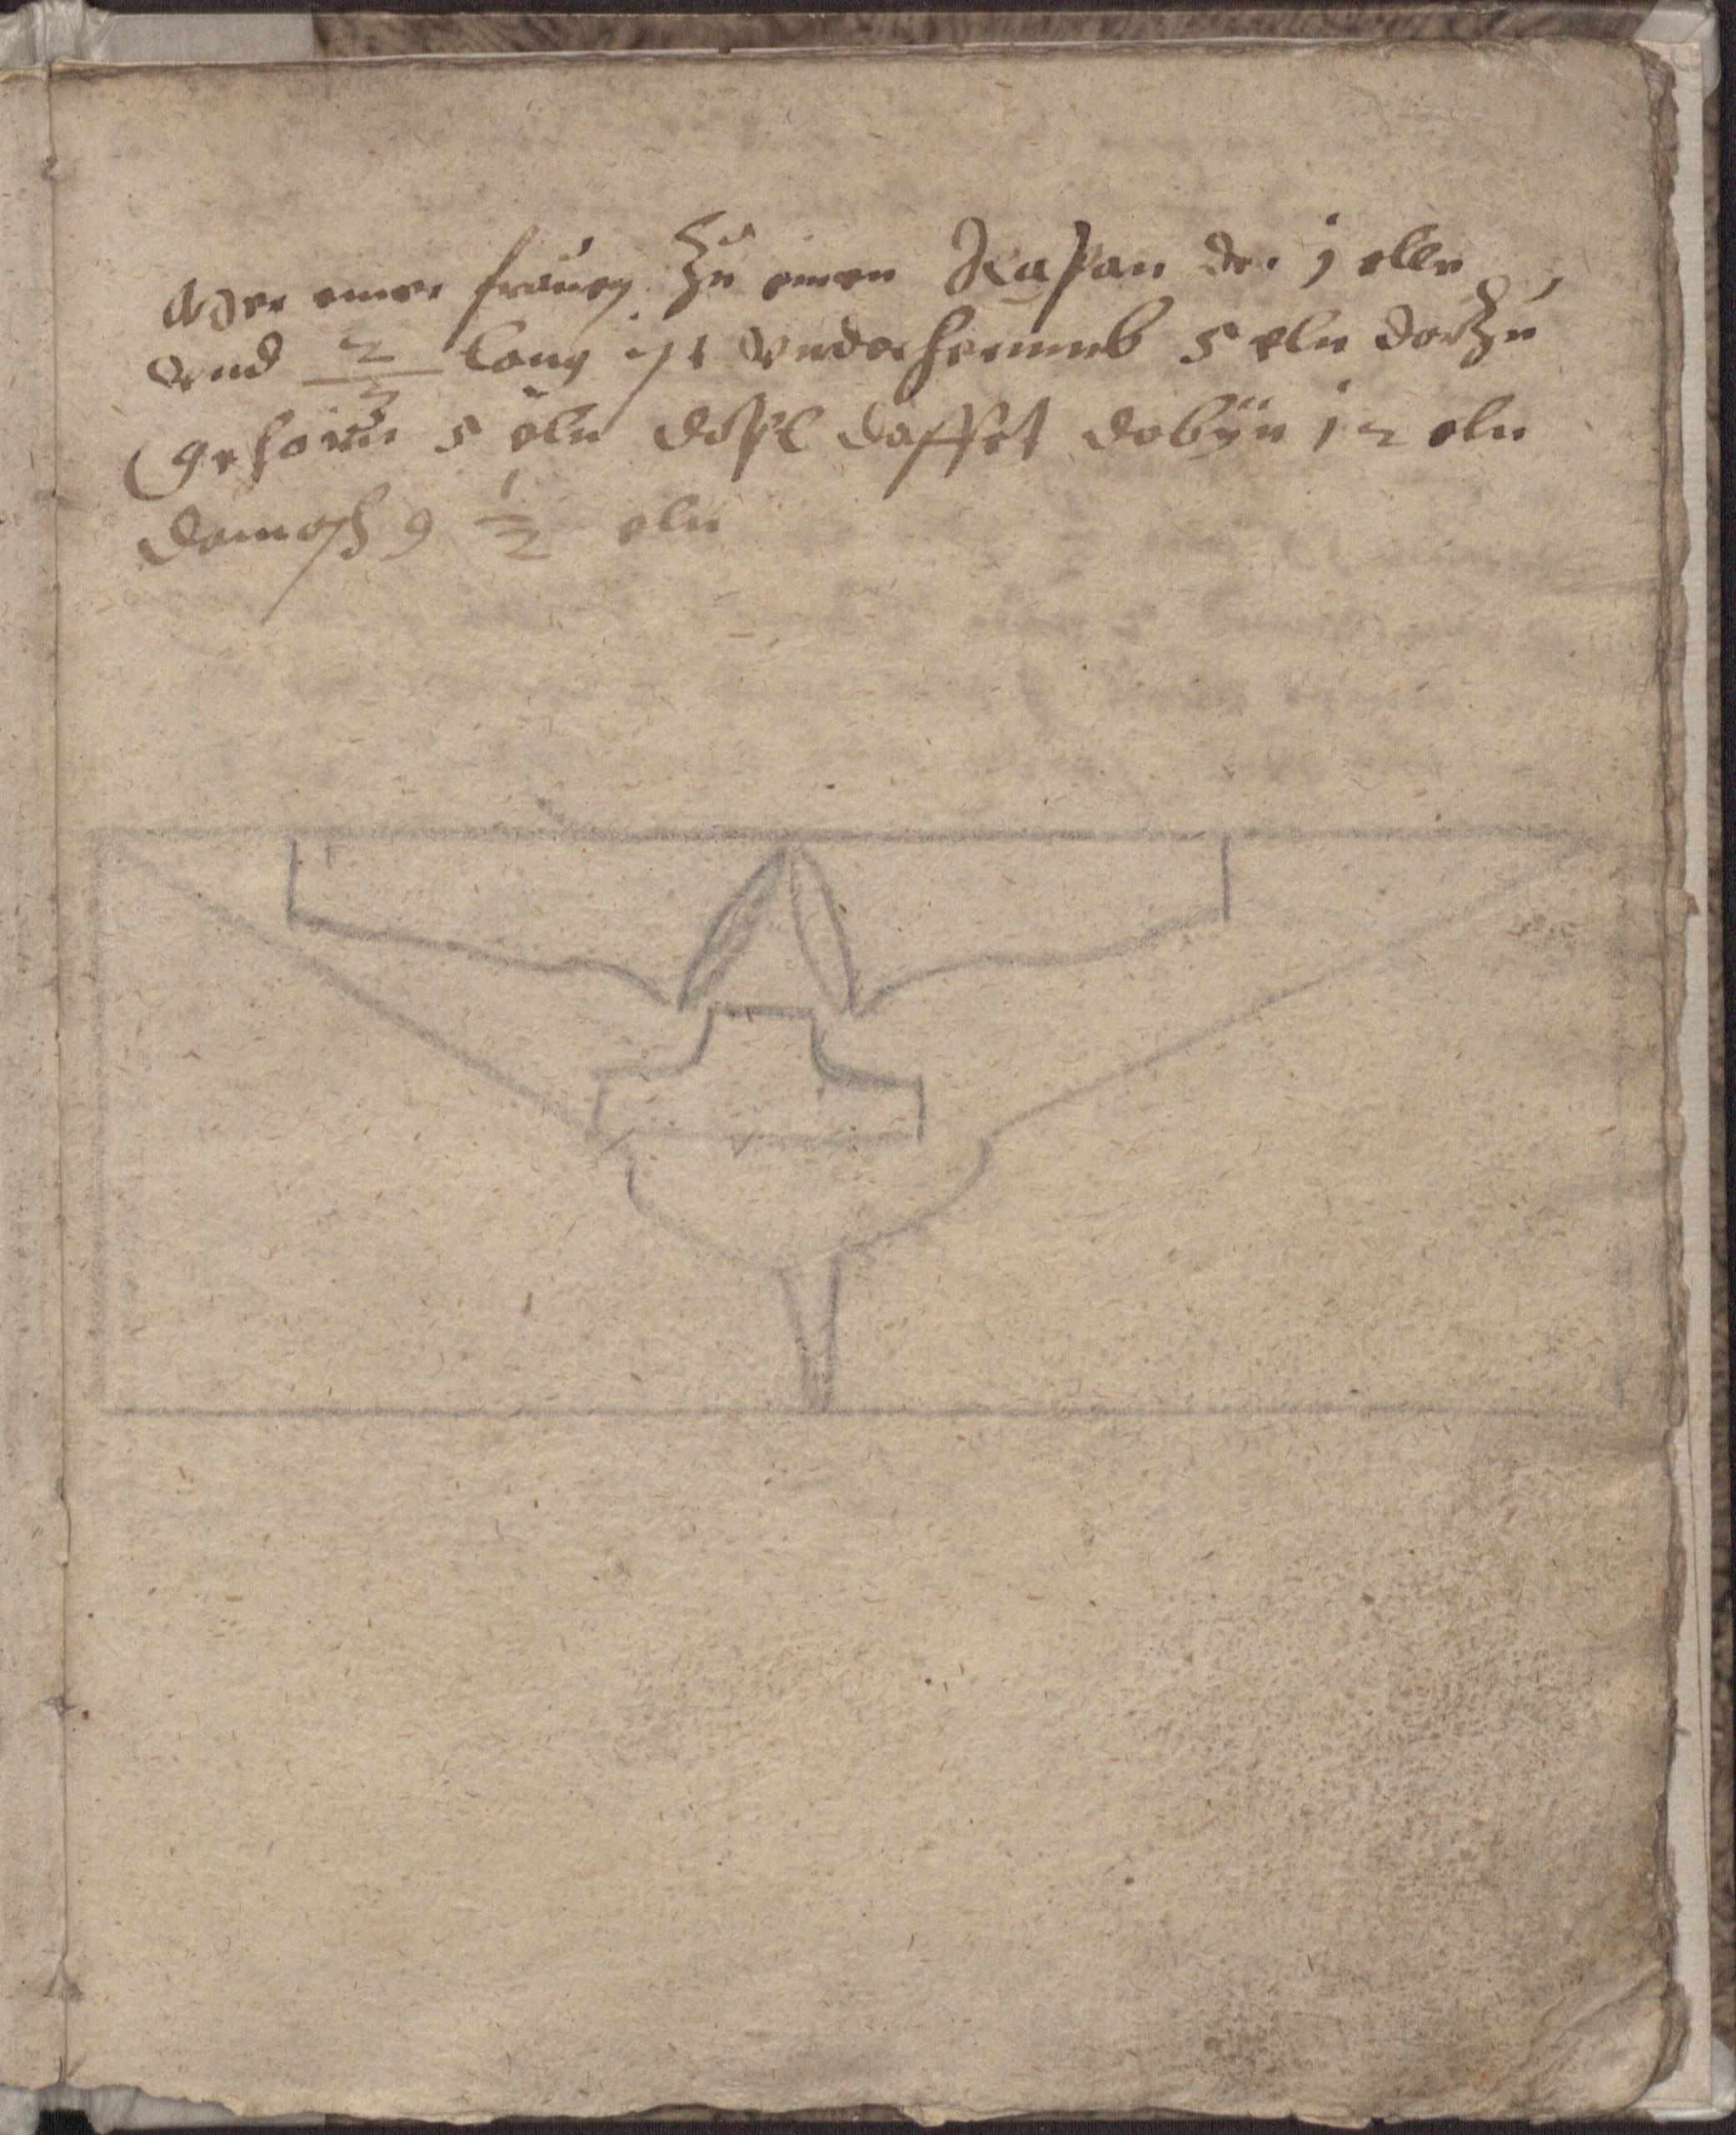 einer frauen Zu einen Kasan der j elle
vnd 2/3 lang ist vnden herumb 5 eln darZu
Gehoren 5 eln dopl daffet dobÿn 12 eln
Damasch 9 1/2 eln